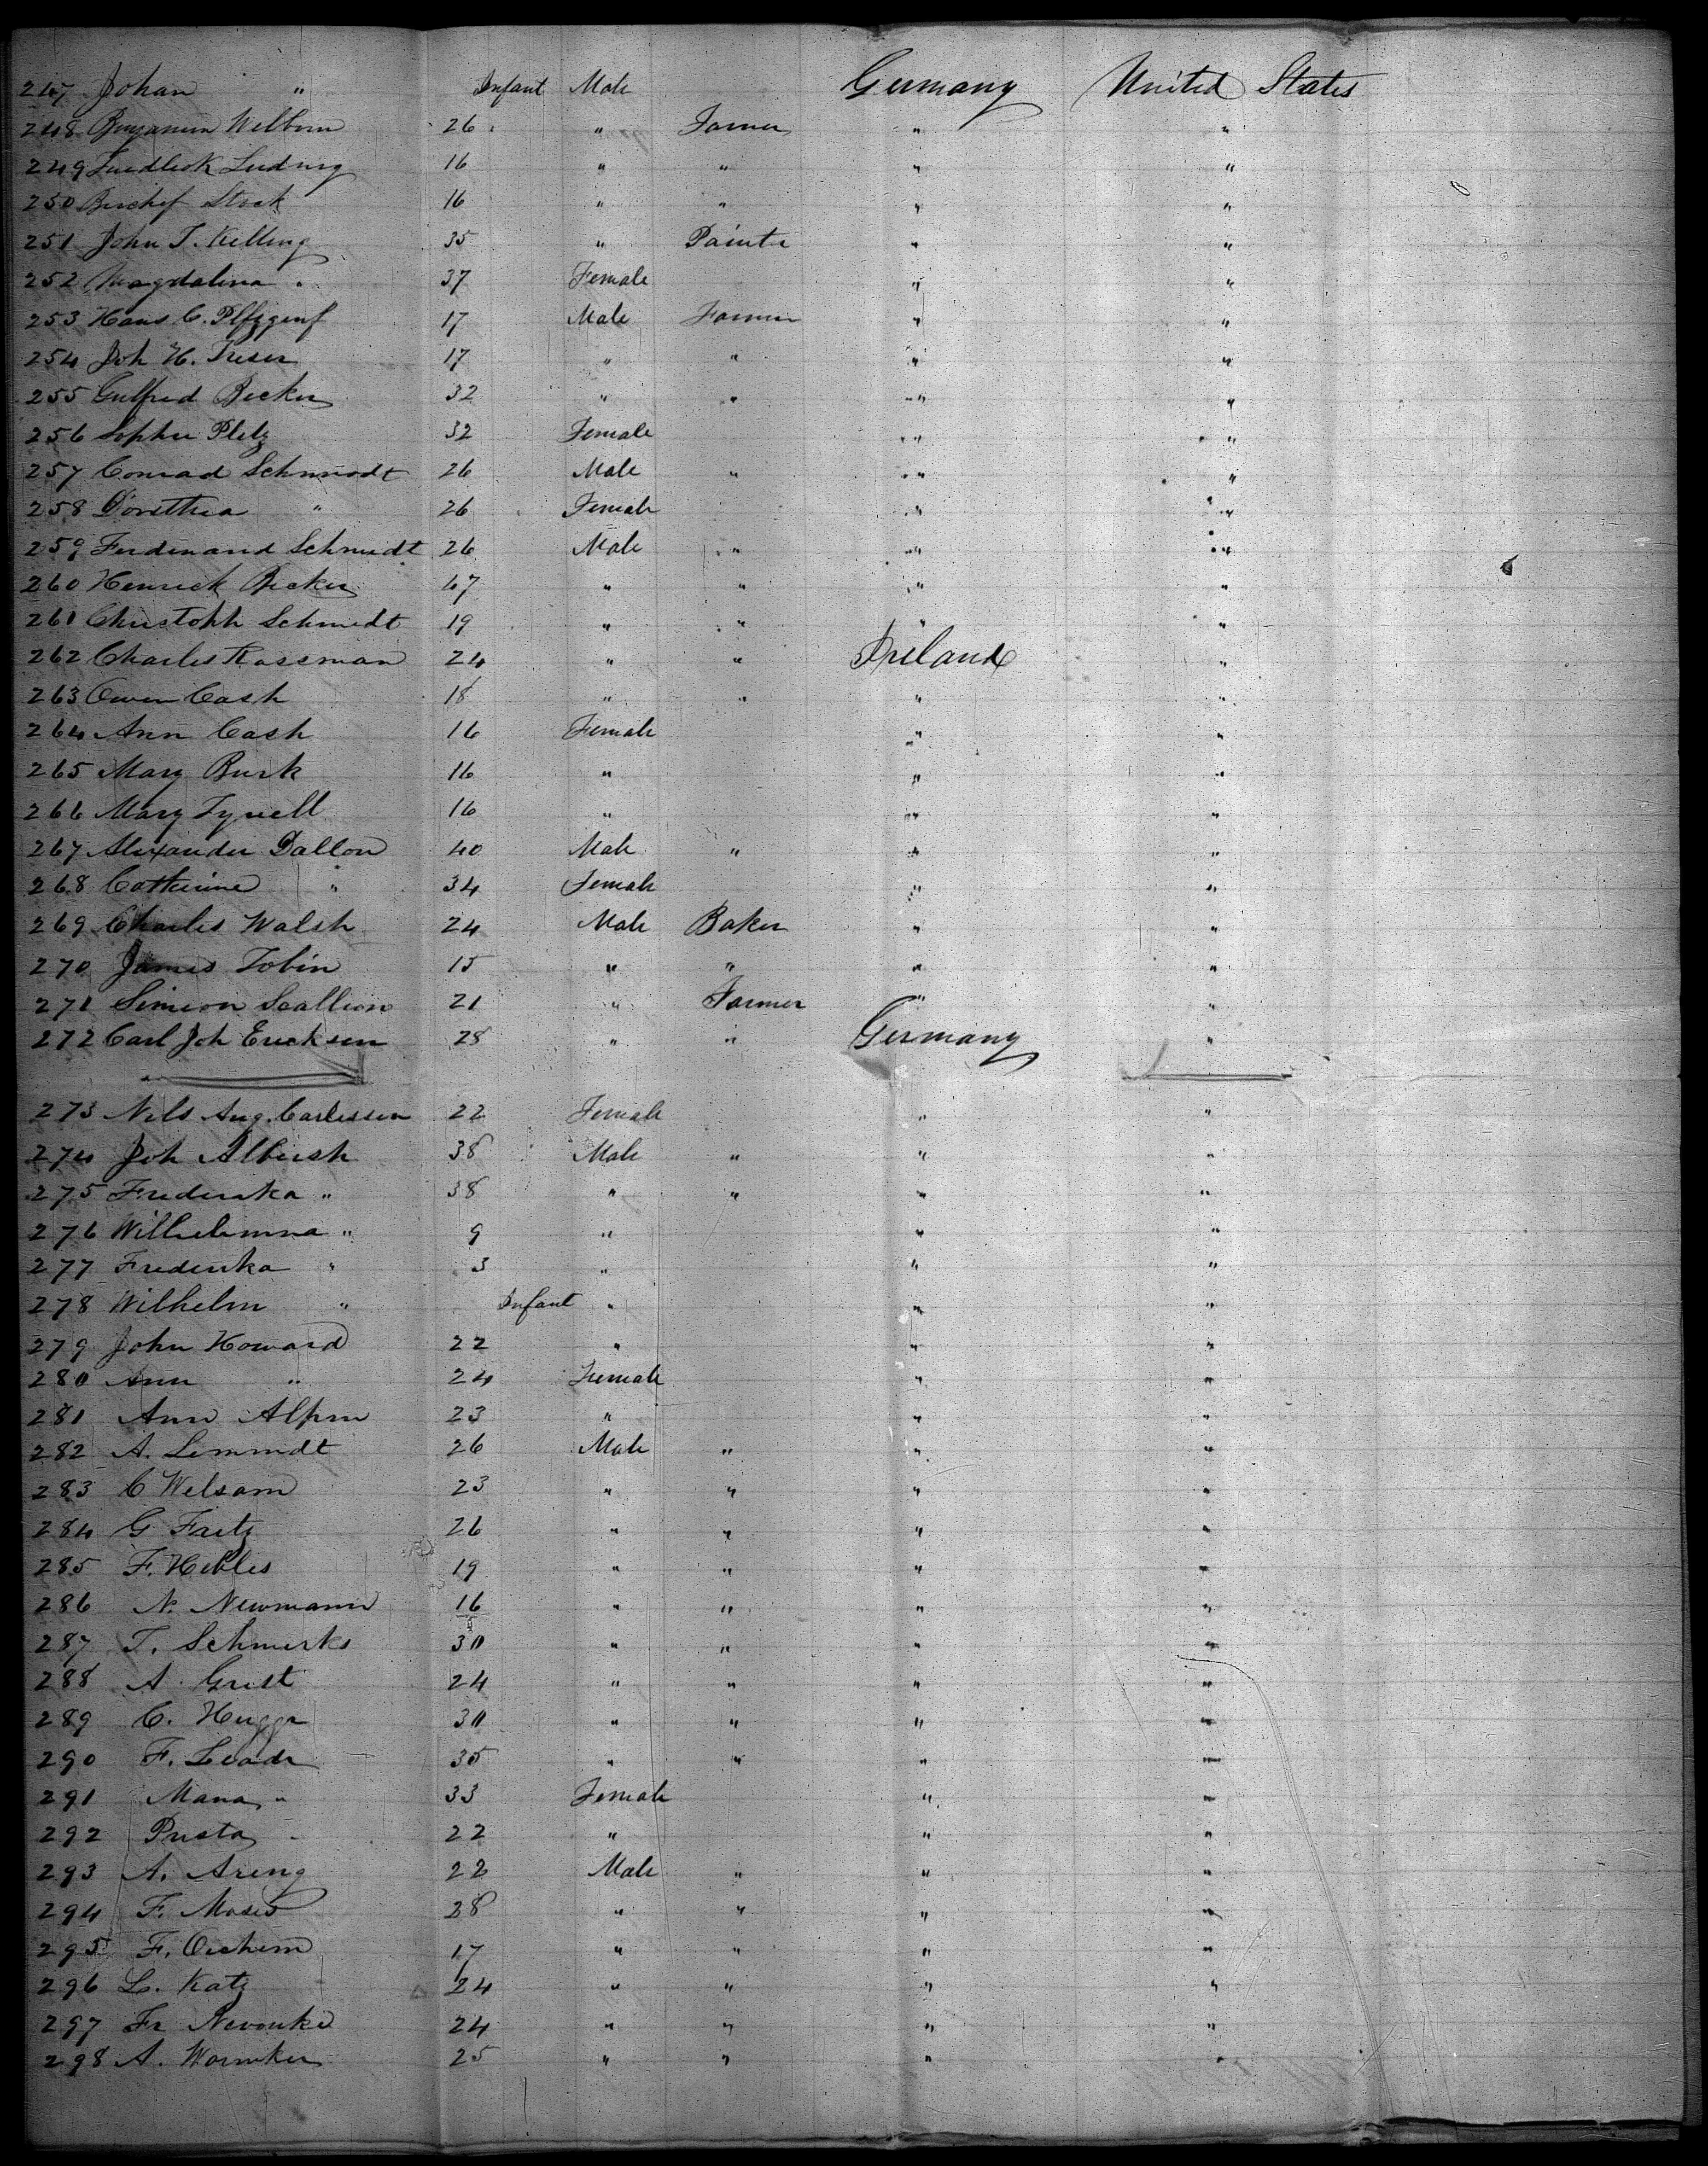 247 Johan " Infant Male Germany United States
248 Benjamin Welborn 26 " Farmer " "
249 Ludwig 16 " " " "
250 16 " " " "
251 John T. Kelling 35 " Painter " "
252 Magdalena " 37 Female " "
253 Hans C. 17 Male Farmer " "
254 Joh H. Treser 17 " " " "
255 Gulfred Becker 32 " " " "
256 Sophie Pletz 32 Female " "
257 Conrad Schmiodt 26 Male " " "
258 Dorethea " 26 Female " "
259 Ferdenand Schmidt 26 Male " " "
260 Henrick Becker 47 " " " "
261 Christoph Schmidt 19 " " " "
262 Charles Rossman 24 " " Ireland "
263 Owen Cash 18 " " " "
264 Ann Cash 16 Female " "
265 Mary Burk 16 " " "
266 Mary Tyrell 16 " " "
267 Alexander Dallon 40 Male " " "
268 Catherine " 34 Female " "
269 Charles Walsh 24 Male Baker " "
270 James Tobin 15 " " " "
271 Simeon Scallion 21 " Farmer " "
272 Carl Joh Ericksen 28 " " Germany "
273 Nels Aug. Carlessen 22 Female " "
274 Joh Albush 38 Male " " "
275 Frederika " 38 " " " "
276 Wilhelmna " 9 " " "
277 Frederika " 3 " " "
278 Wilhelm " Infant " " "
279 John Howard 22 " " "
280 Ann " 24 Female " "
281 Ann Alpin 23 " " "
282 A. Lemmdt 26 Male " " "
283 C Welsam 23 " " " "
284 G Faitz 26 " " " "
285 F. Hebles 19 " " " "
286 N. Newmann 16 " " " "
287 T. Schmerks 30 " " " "
288 A Grist 24 " " " "
289 C. Hugga 30 " " " "
290 F. Leadr 35 " " " "
291 Maria " 33 Female " "
292 Prista " 22 " " "
293 A. Areng 22 Male " " "
294 F. Moser 28 " " " "
295 F. 17 " " " "
296 L. Katz 24 " " " "
297 Fr Nevonke 24 " " " "
298 A. Warnker 25 " " " "